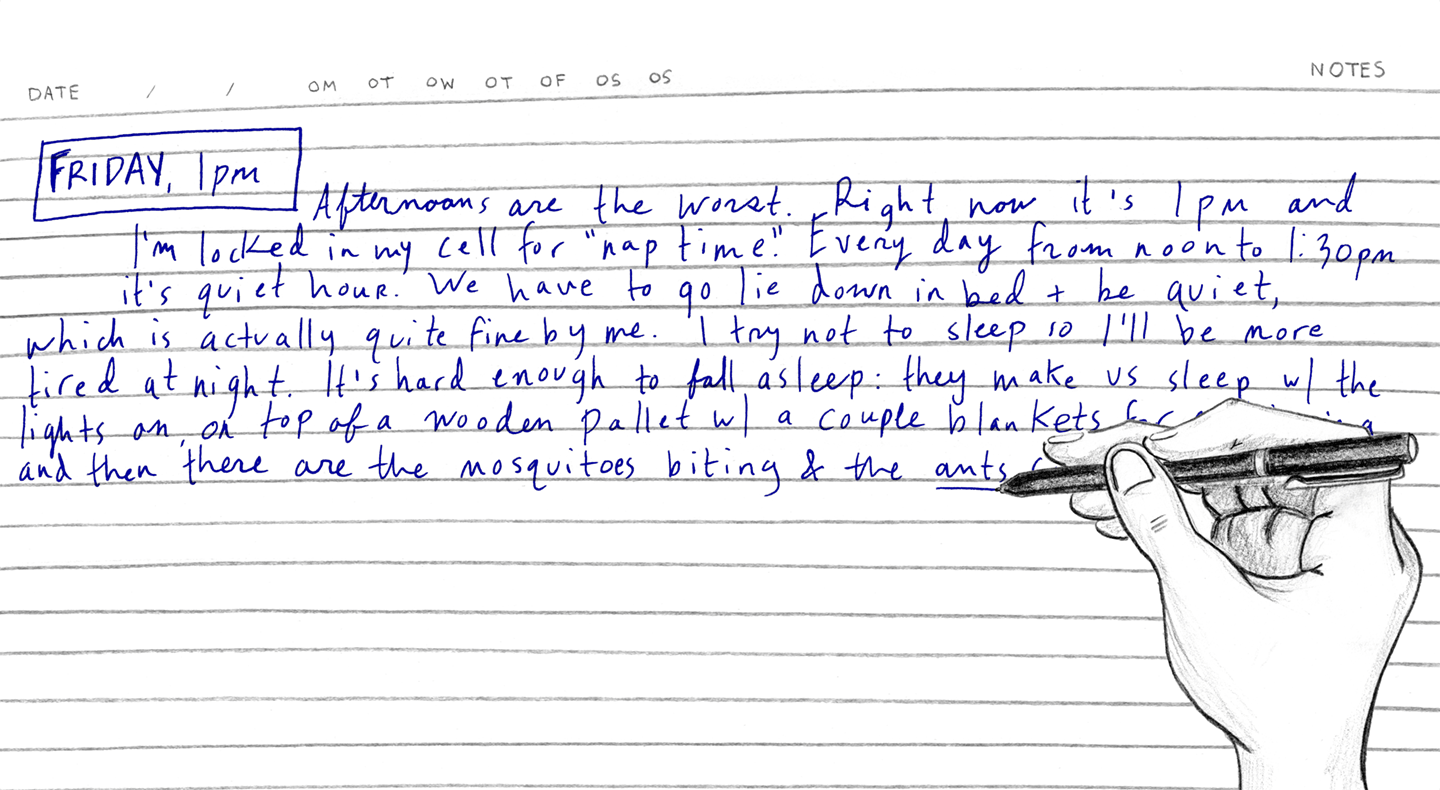 DATE / / OM OT OW OT OF OS OS NOTES
FRIDAY, 1pm
Afternoons are the worst. Right now it's 1pm and
I'm locked in my cell for "nap time." Every day from noon to 1:30pm
it's quiet hour. We have to go lie down in bed + be quiet,
which is actually quite fine by me. I try not to sleep so I'll be more
tired at night. It's hard enough to fall asleep: they make us sleep w/ the
lights on, on top of a wooden pallet w/ a couple blankets
and then there are the mosquitoes biting & the ants